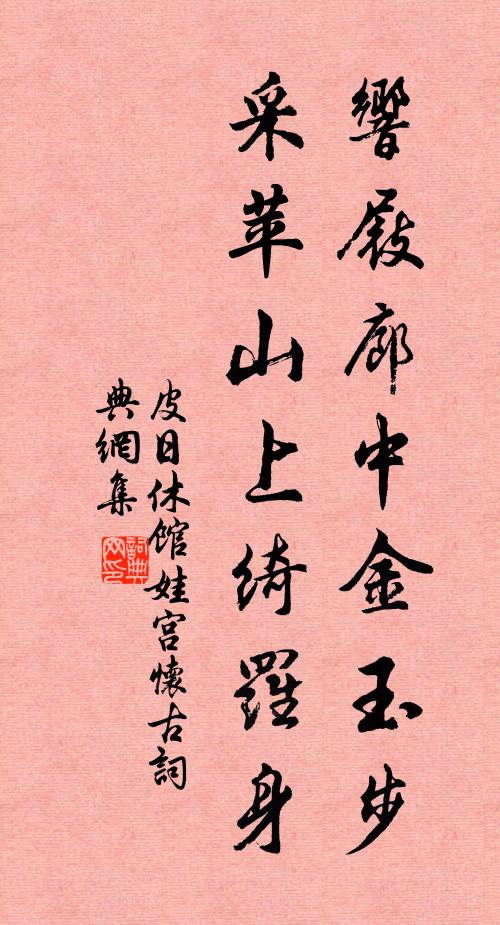 響屐廊中金玉步
采苹山上綺羅身
皮日休館娃宮懷古詞
典網集
詞典網印